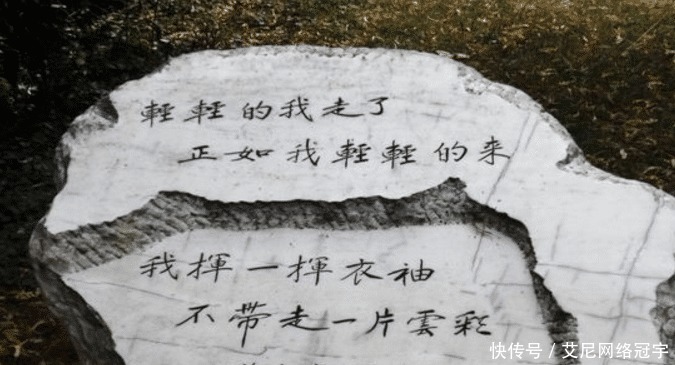 輕輕的我走了
正如我輕輕的来
我揮一揮衣袖
不帶走一片雲彩
快传号 / 艾尼网络冠宇